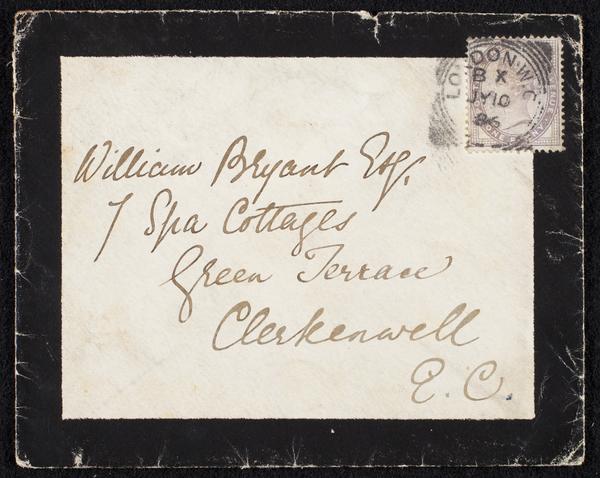 LONDON·W.C.
B X
JY 10
86
William Bryant Esq.
7 Spa Cottages
Green Terrace
Clerkenwell
E. C.